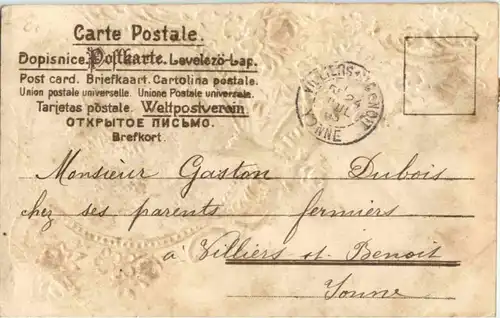 Carte Postale.
Dopisnice. Postkarte. Levelező-Lap.
Post card. Briefkaart. Cartolina postale.
Union postale universelle. Unione Postale universale.
Tarjetas postale. Weltpostverein.
ОТКРЫТОЕ ПИСЬМО.
Brefkort.
VILLIERS-ST-BENOIT
24
YONNE
Monsieur Gaston Dubois
chez ses parents fermiers
à Villiers st. Benoit
Yonne